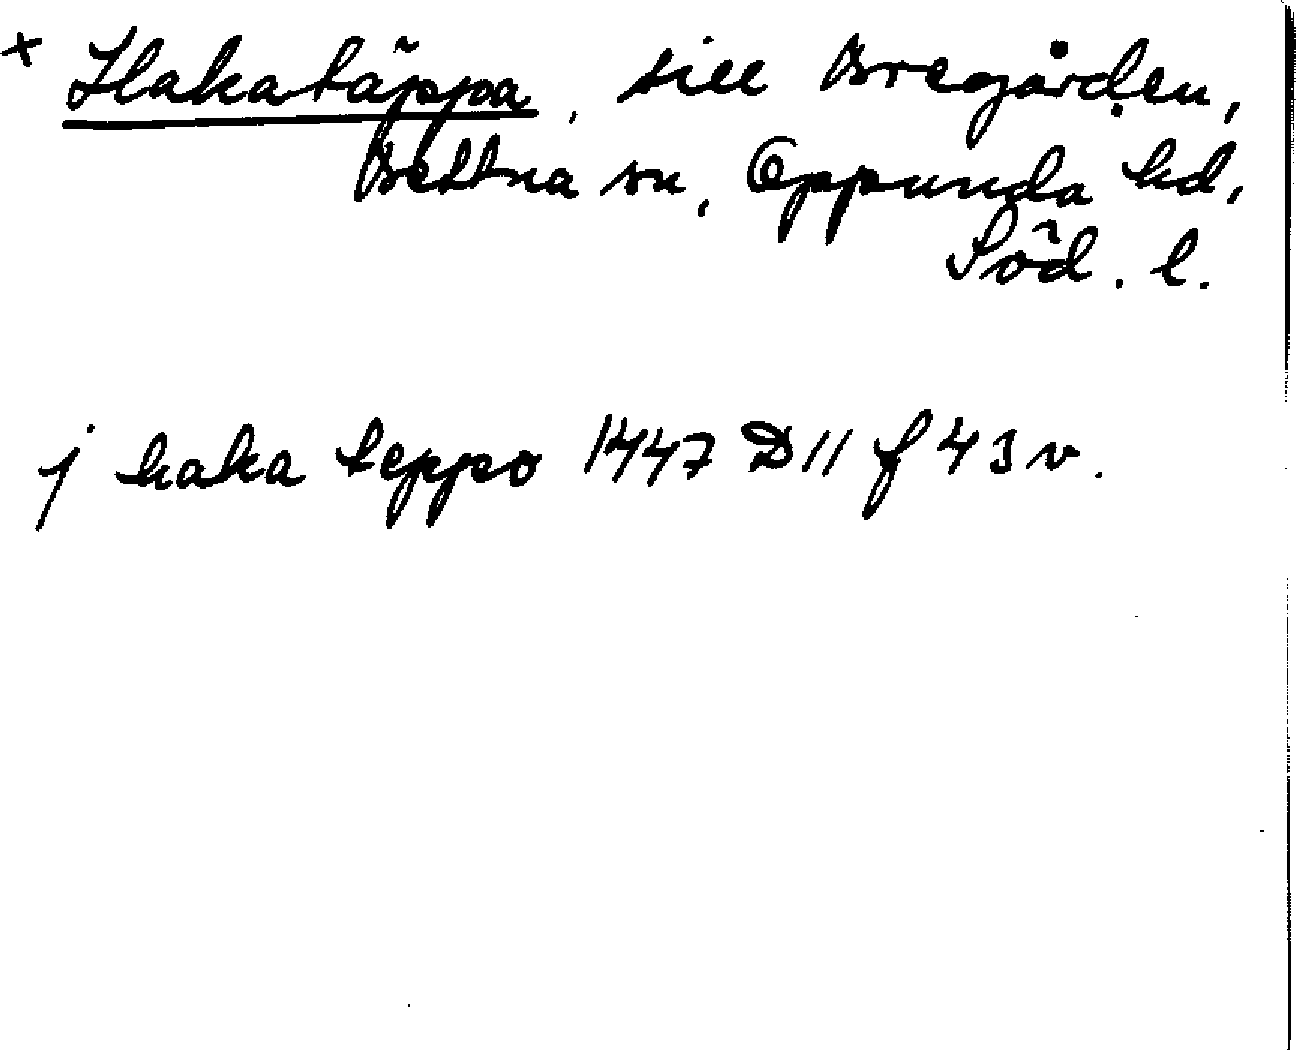 x Hakatäppa, till Bregården,
Bettna sn, Oppunda hd,
Söd. l.
j haka teppo 1447 D11 f 43 v.